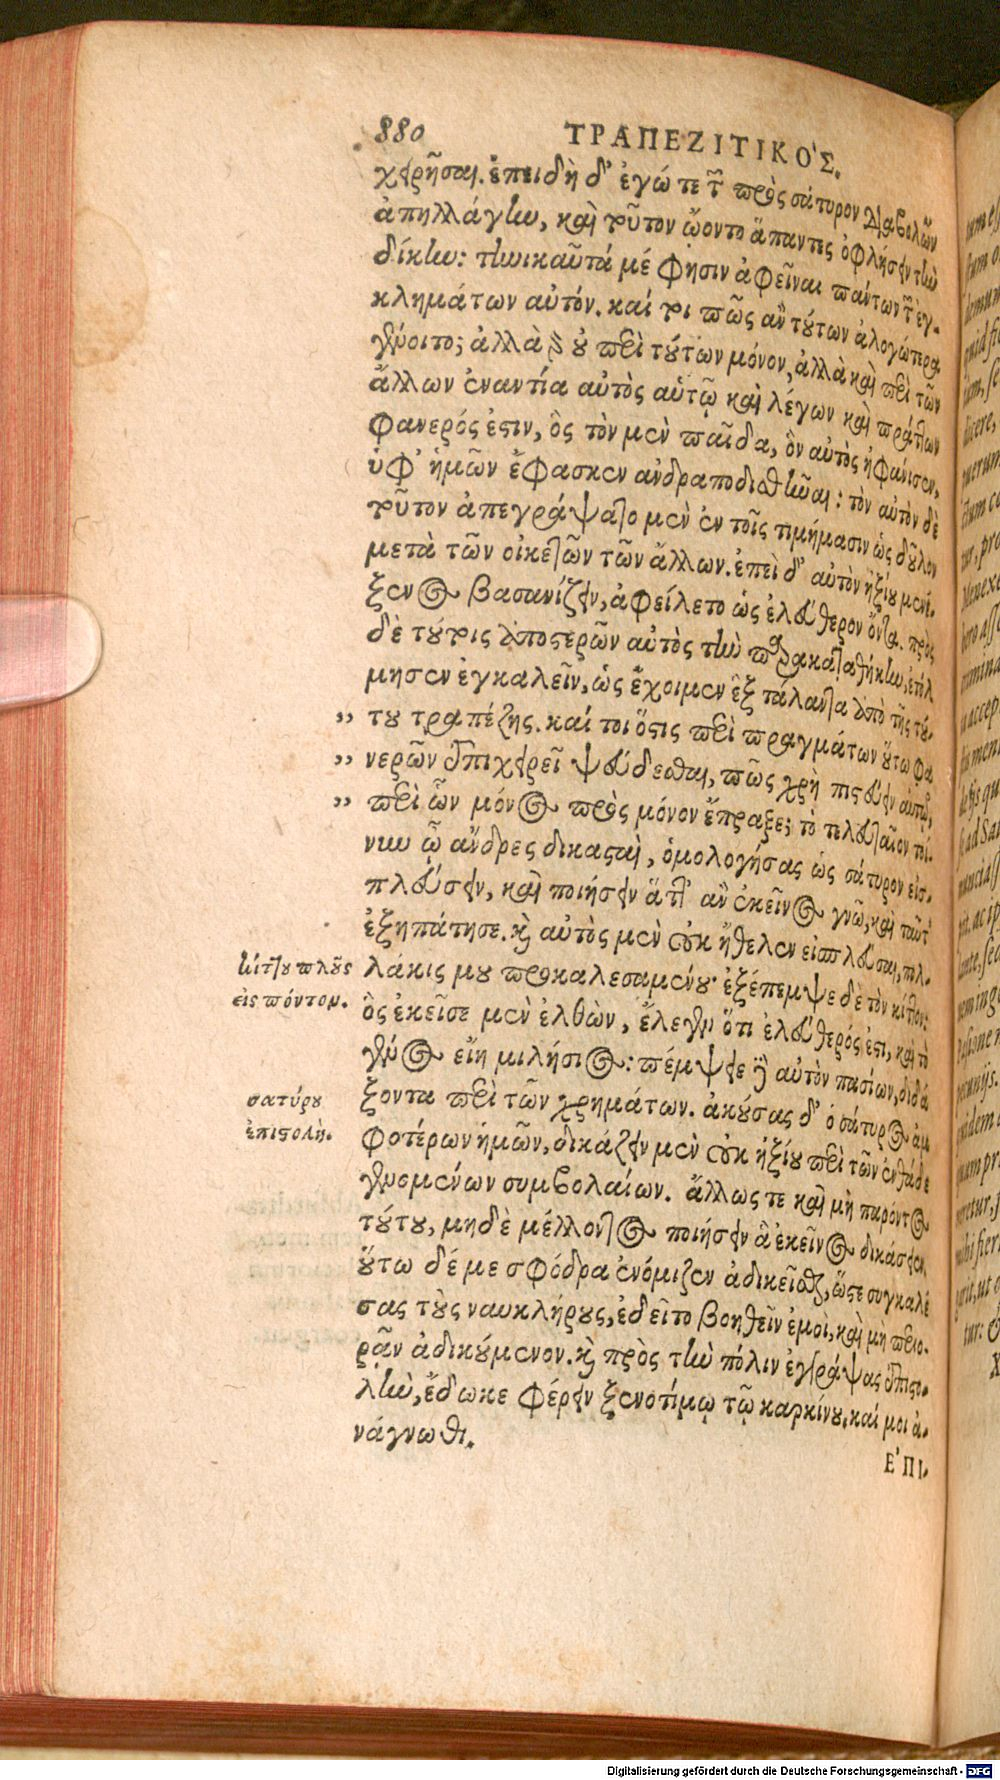 880 ΤΡΑΠΕΖΙΤΙΚΟ΄Σ.
χειρῆσαι. ἐπειδὴ δ' ἐγώ τε τῶν πρὸς σάτυρον διαβολῶν
ἀπηλλάγην, καὶ τοῦτον ᾤοντο ἅπαντες ὀφλήσειν τὴν
δίκην: τηνικαῦτά μέ φησιν ἀφεῖναι πάντων τῶν ἐγ-
κλημάτων αὐτόν. καί τοι πῶς ἂν τούτων ἀλογώτερα
γένοιτο; ἀλλὰ γὰρ οὐ περὶ τούτων μόνον, ἀλλὰ καὶ περὶ τῶν
ἄλλων ἐναντία αὐτὸς αὑτῷ καὶ λέγων καὶ πράττων
φανερός ἐστιν, ὃς τὸν μὲν παῖδα, ὃν αὐτὸς ἠφάνισεν,
ὑφ' ἡμῶν ἔφασκεν ἀνδραποδισθῆναι: τὸν αὐτὸν δὲ
τοῦτον ἀπεγράψατο μὲν ἐν τοῖς τιμήμασιν ὡς δοῦλον
μετὰ τῶν οἰκετῶν τῶν ἄλλων. ἐπεὶ δ' αὐτὸν ἠξίου μενέ-
ξενος βασανίζειν, ἀφείλετο ὡς ἐλεύθερον ὄντα. πρὸς
δὲ τούτοις ἀποστερῶν αὐτὸς τὴν παρακαταθήκην, ἐτόλ
μησεν ἐγκαλεῖν, ὡς ἔχοιμεν ἓξ τάλαντα ἀπὸ τῆς τού-
,, του τραπέζης. καί τοι ὅστις περὶ πραγμάτων οὕτω φα
,, νερῶν ἐπιχειρεῖ ψεύδεσθαι, πῶς χρὴ πιστεύειν αὐτῷ,
,, περὶ ὧν μόνος πρὸς μόνον ἔπραξε; τὸ τελευταῖον τοί-
νυν ὦ ἄνδρες δικασταὶ, ὁμολογήσας ὡς σάτυρον εἰσ-
πλεύσειν, καὶ ποιήσειν ἅττ' ἂν ἐκεῖνος γνῷ, καὶ ταῦτ'
ἐξηπάτησε. καὶ αὐτὸς μὲν οὐκ ἤθελεν εἰσπλεῦσαι, πολ-
λάκις μου προκαλεσαμένου· ἐξέπεμψε δὲ τὸν κίττον:
ὃς ἐκεῖσε μὲν ἐλθὼν, ἔλεγεν ὅτι ἐλεύθερός ἐστι, καὶ τὸ
γένος εἴη μιλήσιος: πέμψειε δὲ αὐτὸν πασίων, διδά
ξοντα περὶ τῶν χρημάτων. ἀκούσας δ' ὁ σάτυρος ἀμ
φοτέρων ἡμῶν, δικάζειν μὲν οὐκ ἠξίου περὶ τῶν ἐνθάδε
γενομένων συμβολαίων. ἄλλως τε καὶ μὴ παρόντος
τούτου, μηδὲ μέλλοντος ποιήσειν ἃ ἐκεῖνος δικάσειεν.
οὕτω δέ με σφόδρα ἐνόμιζεν ἀδικεῖσθαι, ὥστε συγκαλέ
σας τοὺς ναυκλήρους, ἐδεῖτο βοηθεῖν ἐμοι, καὶ μὴ περιο-
ρᾷν ἀδικούμενον. καὶ πρὸς τὴν πόλιν ἐγγράψας ἐπιστο-
λὴν, ἔδωκε φέρειν ξενοτίμῳ τῷ καρκίνου. καί μοι ἀ-
νάγνωθι.
ΕʹΠΙ-
κίττου πλοῦς
εἰς πόντον.
σατύρου
ἐπιστολὴ.